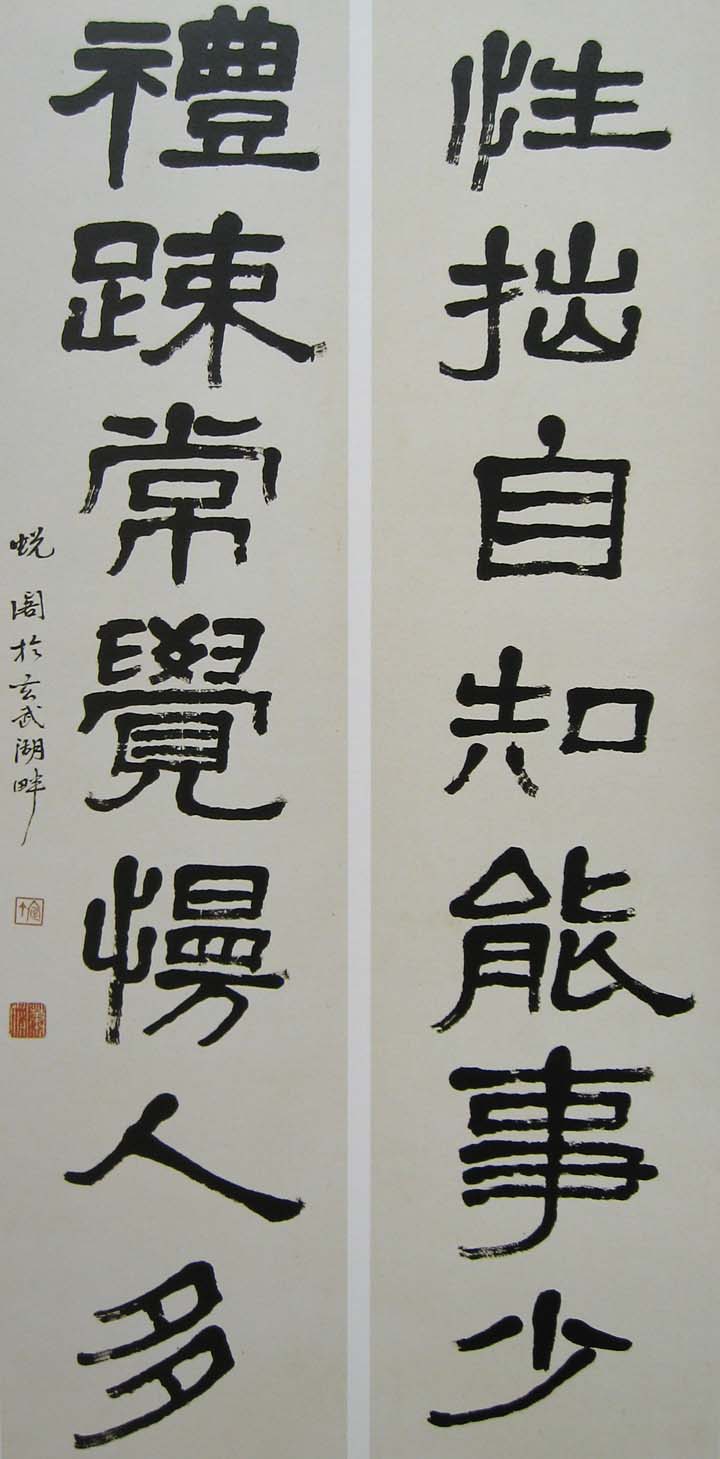 性拙自知能事少
禮踈常覺慢人多
蜕闇於玄武湖畔